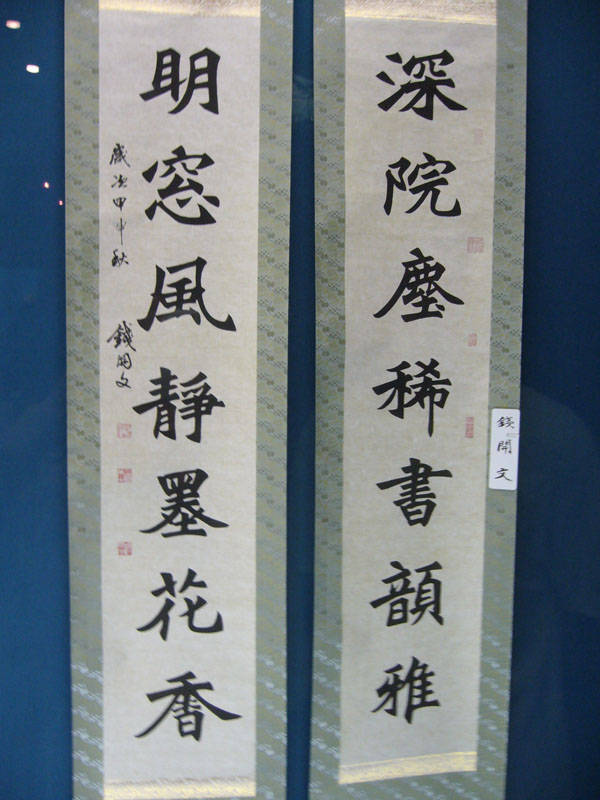 深院塵稀書韻雅
明窓風靜墨花香
歲次甲申秋 錢開文
錢開文